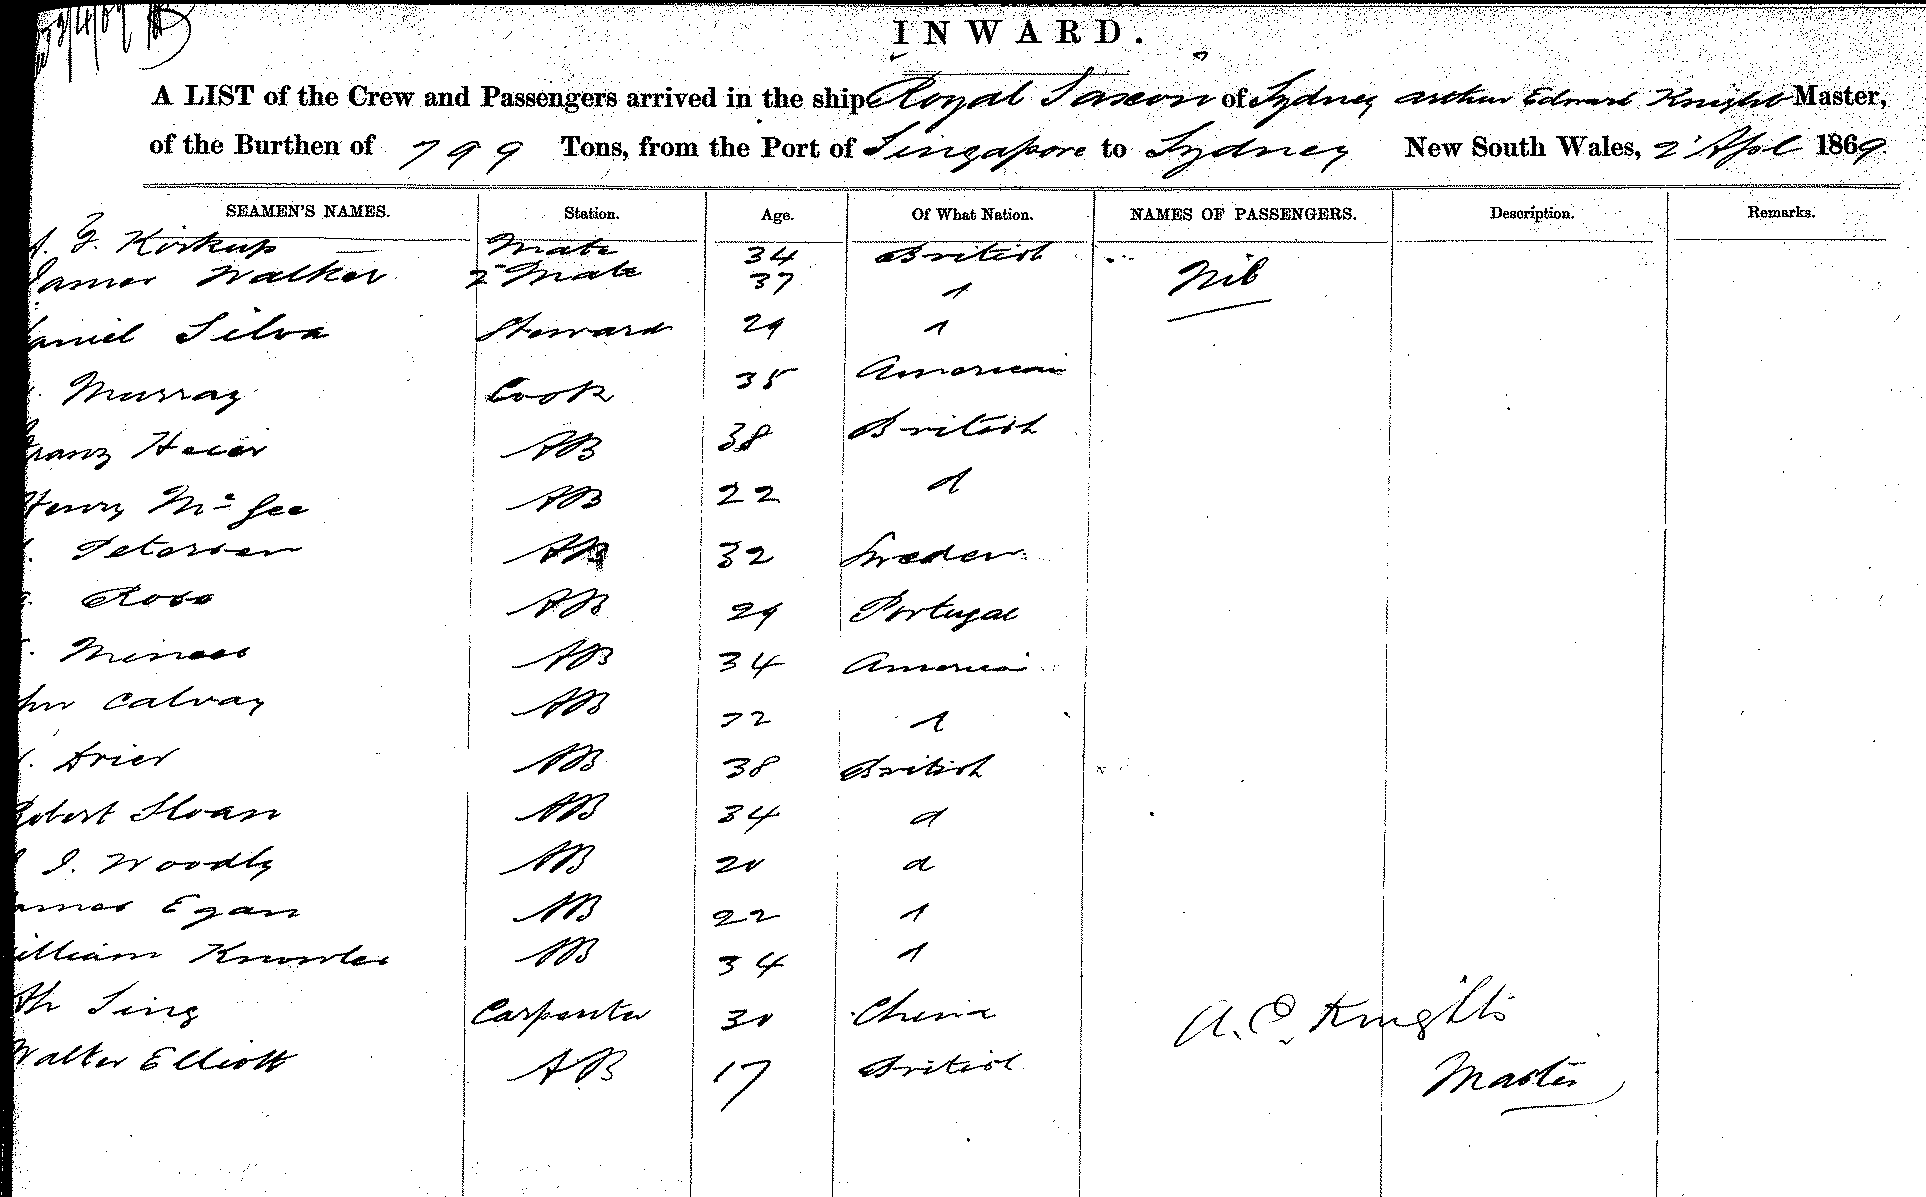 INWARD.
A LIST of the Crew and Passengers arrived in the ship Royal Saxon of Sydney Arthur Edward Knights Master,
of the Burthen of 799 Tons, from the Port of Singapore to Sydney New South Wales, 2 Apl 1869
SEAMEN'S NAMES. Station. Age. Of What Nation. NAMES OF PASSENGERS. Description. Remarks.
F. Kirkup Mate 34 British
James Walker 2 Mate 37 " Nil
Daniel Silva Steward 29 "
Murray Cook 35 American
Franz Heier AB 38 British
Henry McGee AB 22 d
Petersen AB 32 Sweden
Rosa AB 29 Portugal
AB 34 America
John Calvay AB 22 "
AB 38 British
Robert Sloan AB 34 d
J. Woodly AB 20 d
James Egan AB 22 "
William Knowles AB 34 "
Ah Sing Carpenter 30 China A. E. Knights
Walter Elliott AB 17 British Master